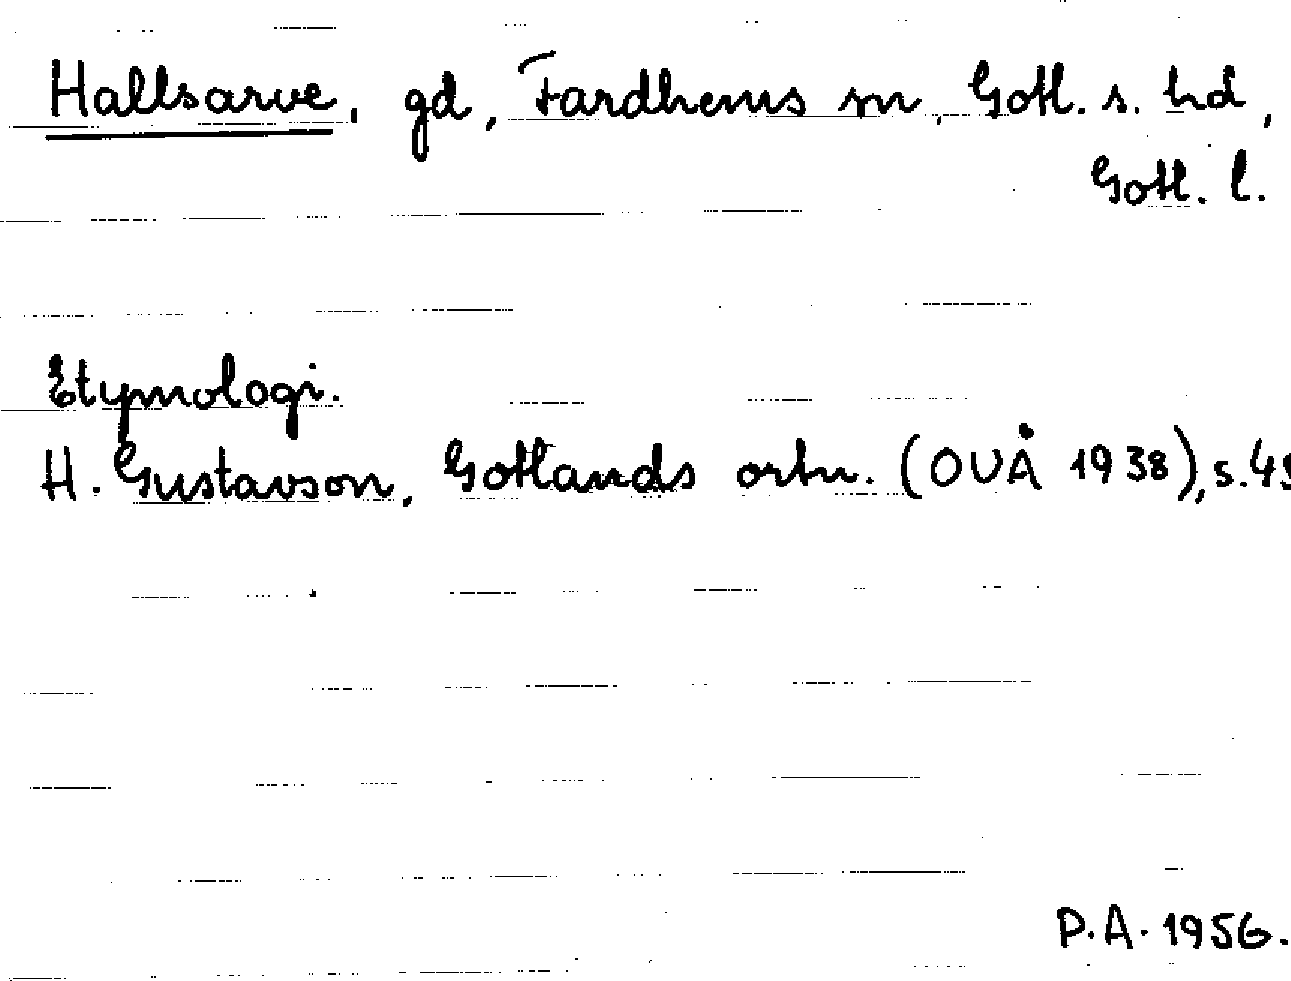 Hallsarve, gd, Fardhems sn, Gotl. s. hd,
Gotl. l.
Etymologi.
H. Gustavson, Gotlands ortn. (OUÅ 1938), s. 49
P.A. 1956.